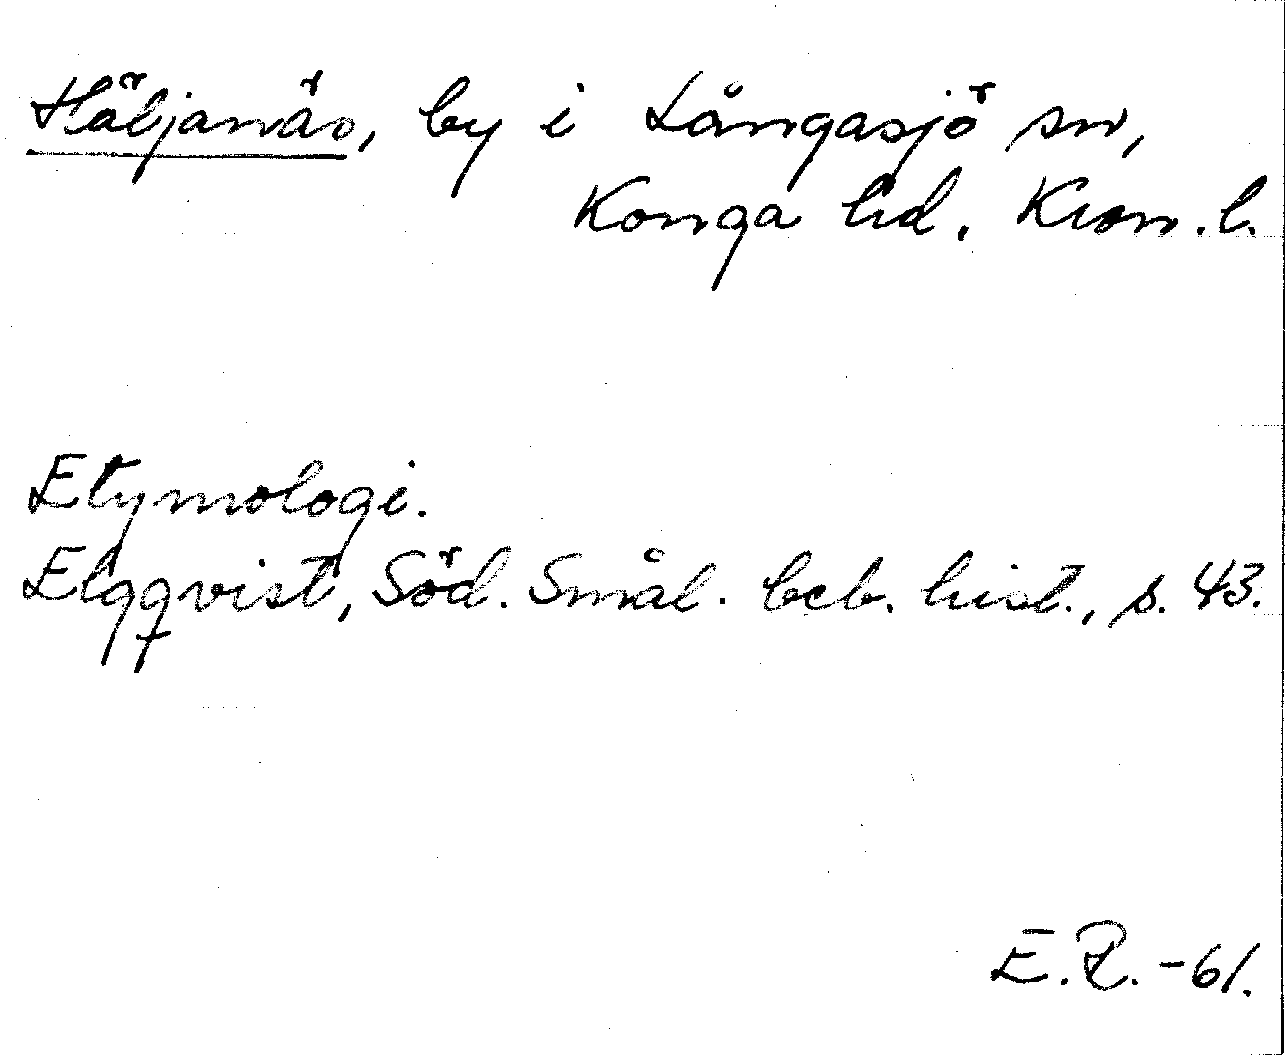 Häljanäs, by i Långasjö sn,
Konga hd. Kron. l.
Etymologi.
Elgqvist, Söd. Smål. beb. hist., s. 43.
E.R. -61.